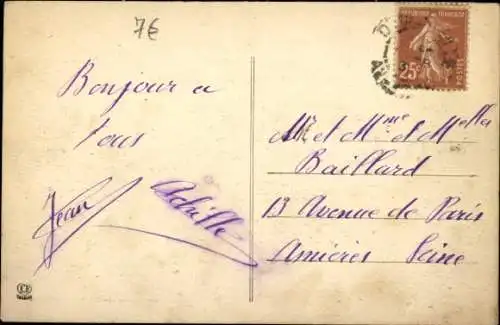 7€
Bonjour a
tous
Jean
Achille
REPUBLIQUE FRANÇAISE
25c
POSTES
Mr et Mme et Melles
Baillard
13 Avenue de Paris
Asnières Seine